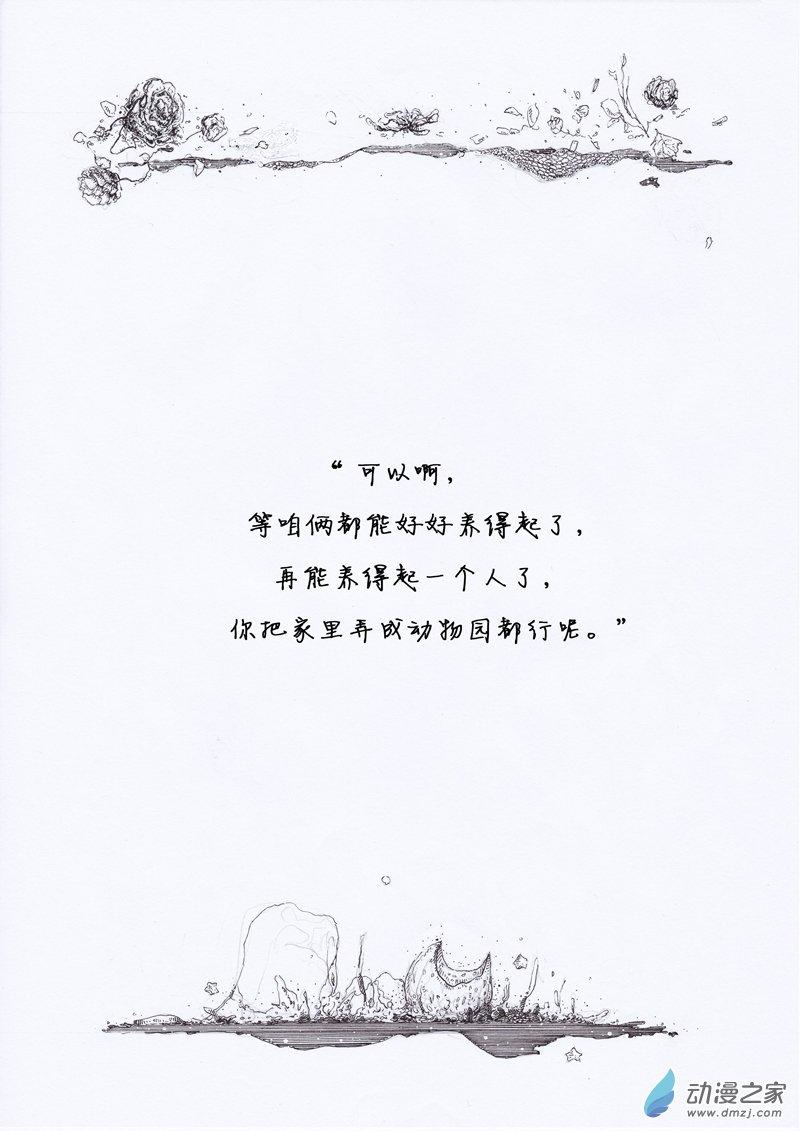 “可以啊，
等咱俩都能好好养得起了，
再能养得起一个人了，
你把家里弄成动物园都行呢。”
动漫之家
www.dmzj.com